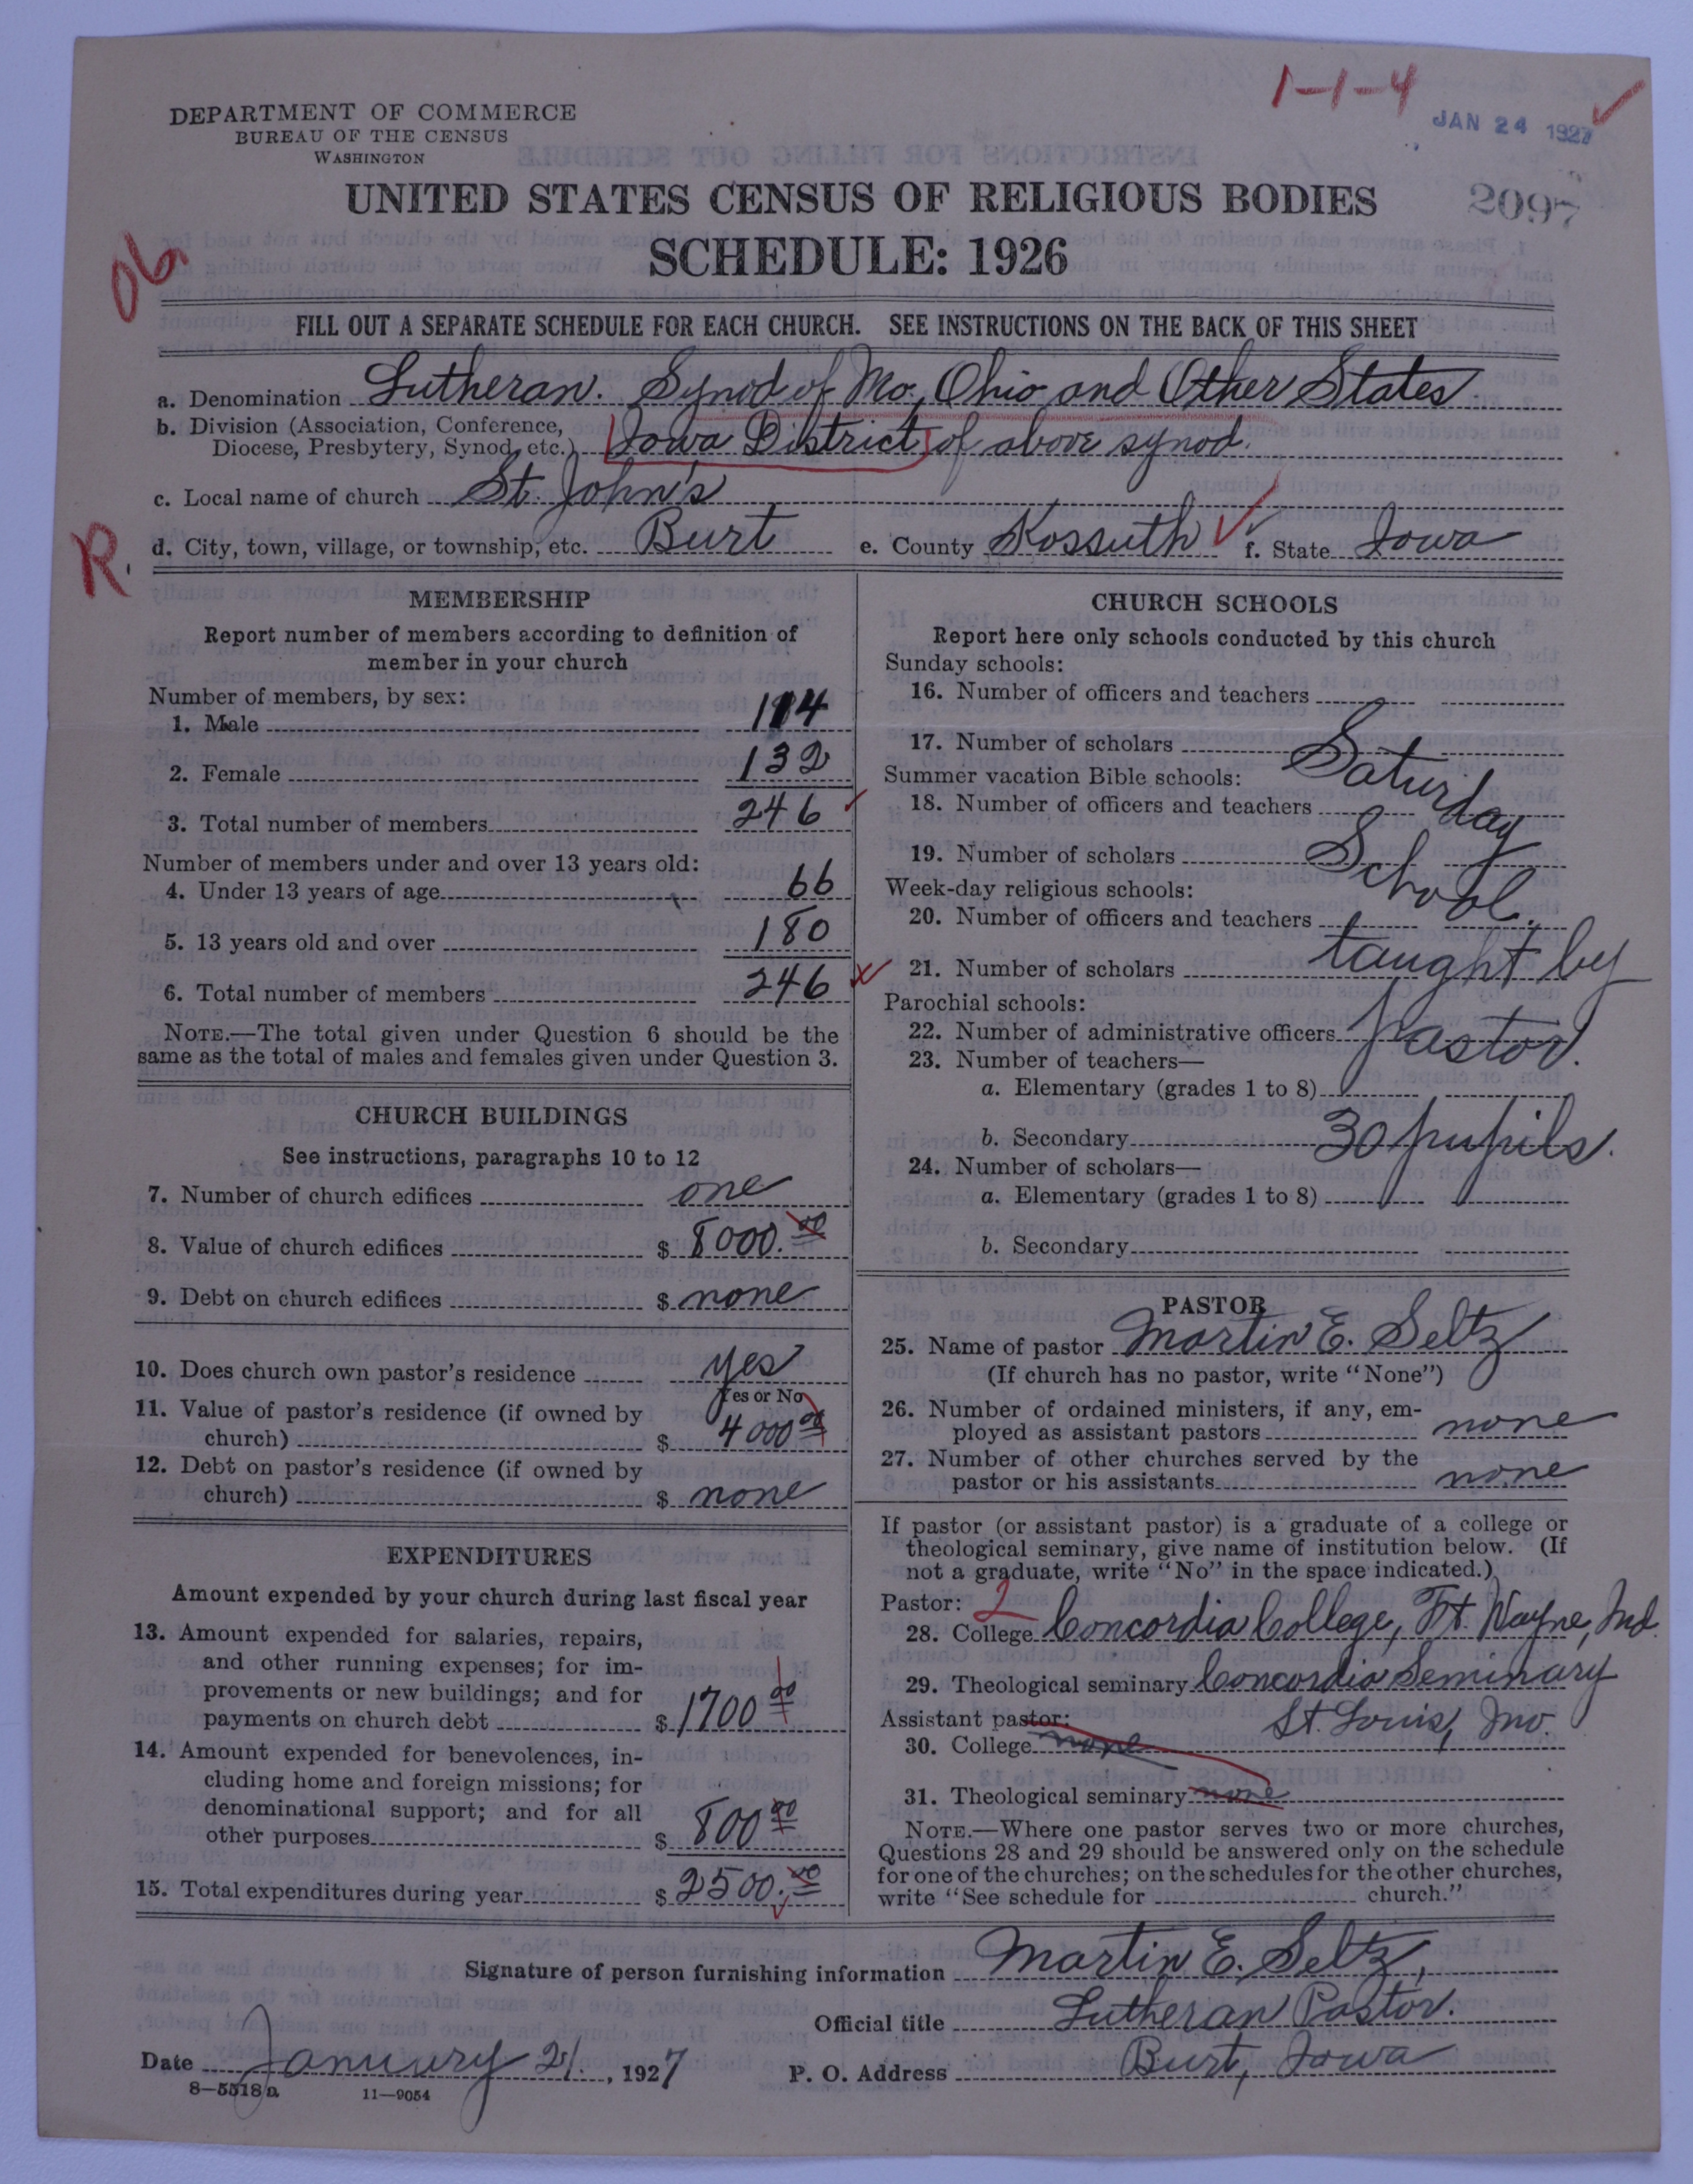 1-1-4
JAN 24 1927
DEPARTMENT OF COMMERCE
BUREAU OF THE CENSUS
WASHINGTON
UNITED STATES CENSUS OF RELIGIOUS BODIES
2097
SCHEDULE: 1926
FILL OUT A SEPARATE SCHEDULE FOR EACH CHURCH. SEE INSTRUCTIONS ON THE BACK OF THIS SHEET
a. Denomination Lutheran. Synod of Mo, Ohio and Other States
b. Division (Association, Conference,
Diocese, Presbytery, Synod, etc.) Iowa District of above synod.
c. Local name of church St. John's
R.
d. City, town, village, or township, etc. Burt e. County Kossuth f. State Iowa
MEMBERSHIP
Report number of members according to definition of
member in your church
Number of members, by sex:
1. Male 114
2. Female 132
3. Total number of members 246
Number of members under and over 13 years old:
4. Under 13 years of age 66
5. 13 years old and over 180
6. Total number of members 246
NOTE.—The total given under Question 6 should be the
same as the total of males and females given under Question 3.
CHURCH BUILDINGS
See instructions, paragraphs 10 to 12
7. Number of church edifices one
8. Value of church edifices $ 8000.00
9. Debt on church edifices $ none
10. Does church own pastor's residence yes
Yes or No
11. Value of pastor's residence (if owned by
church) $ 4000 00
12. Debt on pastor's residence (if owned by
church) $ none
EXPENDITURES
Amount expended by your church during last fiscal year
13. Amount expended for salaries, repairs,
and other running expenses; for im-
provements or new buildings; and for
payments on church debt $ 1700 00
14. Amount expended for benevolences, in-
cluding home and foreign missions; for
denominational support; and for all
other purposes $ 800 00
15. Total expenditures during year $ 2500.00
CHURCH SCHOOLS
Report here only schools conducted by this church
Sunday schools:
16. Number of officers and teachers
17. Number of scholars
Summer vacation Bible schools:
18. Number of officers and teachers
19. Number of scholars
Week-day religious schools:
20. Number of officers and teachers
21. Number of scholars
Parochial schools:
22. Number of administrative officers
23. Number of teachers—
a. Elementary (grades 1 to 8)
b. Secondary
24. Number of scholars—
a. Elementary (grades 1 to 8)
b. Secondary
Saturday
School.
taught by
pastor.
30 pupils.
PASTOR
25. Name of pastor Martin E. Seltz
(If church has no pastor, write "None")
26. Number of ordained ministers, if any, em-
ployed as assistant pastors none
27. Number of other churches served by the
pastor or his assistants none
If pastor (or assistant pastor) is a graduate of a college or
theological seminary, give name of institution below. (If
not a graduate, write "No" in the space indicated.)
Pastor: 2
28. College Concordia College, Ft. Wayne, Ind.
29. Theological seminary Concordia Seminary
Assistant pastor: St. Louis, Mo.
30. College none
31. Theological seminary none
NOTE.—Where one pastor serves two or more churches,
Questions 28 and 29 should be answered only on the schedule
for one of the churches; on the schedules for the other churches,
write "See schedule for church."
Signature of person furnishing information Martin E. Seltz,
Official title Lutheran Pastor.
Date January 21, 1927 P. O. Address Burt, Iowa
8—5518a 11—9054